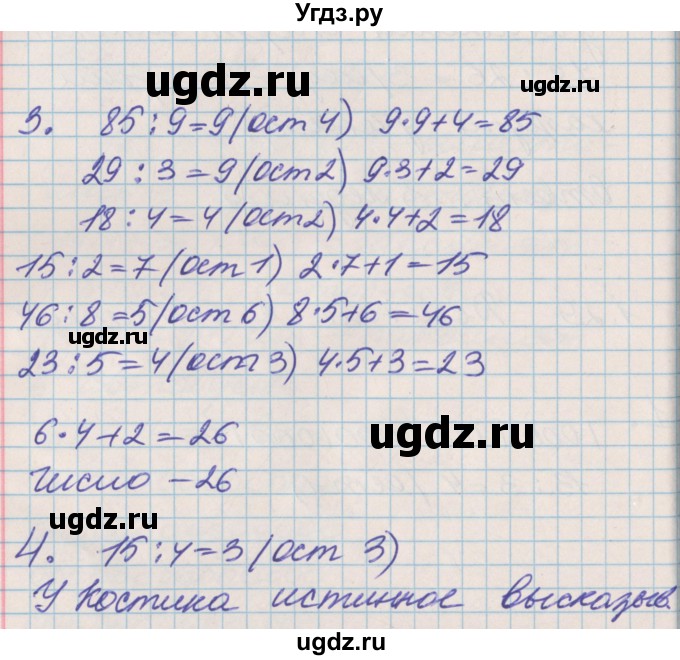 Угдз.ру
ugdz.ru ugdz.ru
3. 85:9=9(ост 4) 9·9+4=85
29:3=9(ост2) 9·3+2=29
18:4=4(ост2) 4·4+2=18
15:2=7(ост1) 2·7+1=15
46:8=5(ост 6) 8·5+6=46
ugdz.ru
23:5=4(ост 3) 4·5+3=23
6·4+2=26
ugdz.ru
Число -26
ugdz.ru
4. 15:4=3(ост 3)
У Костика истинное высказыв.
ugdz.ru